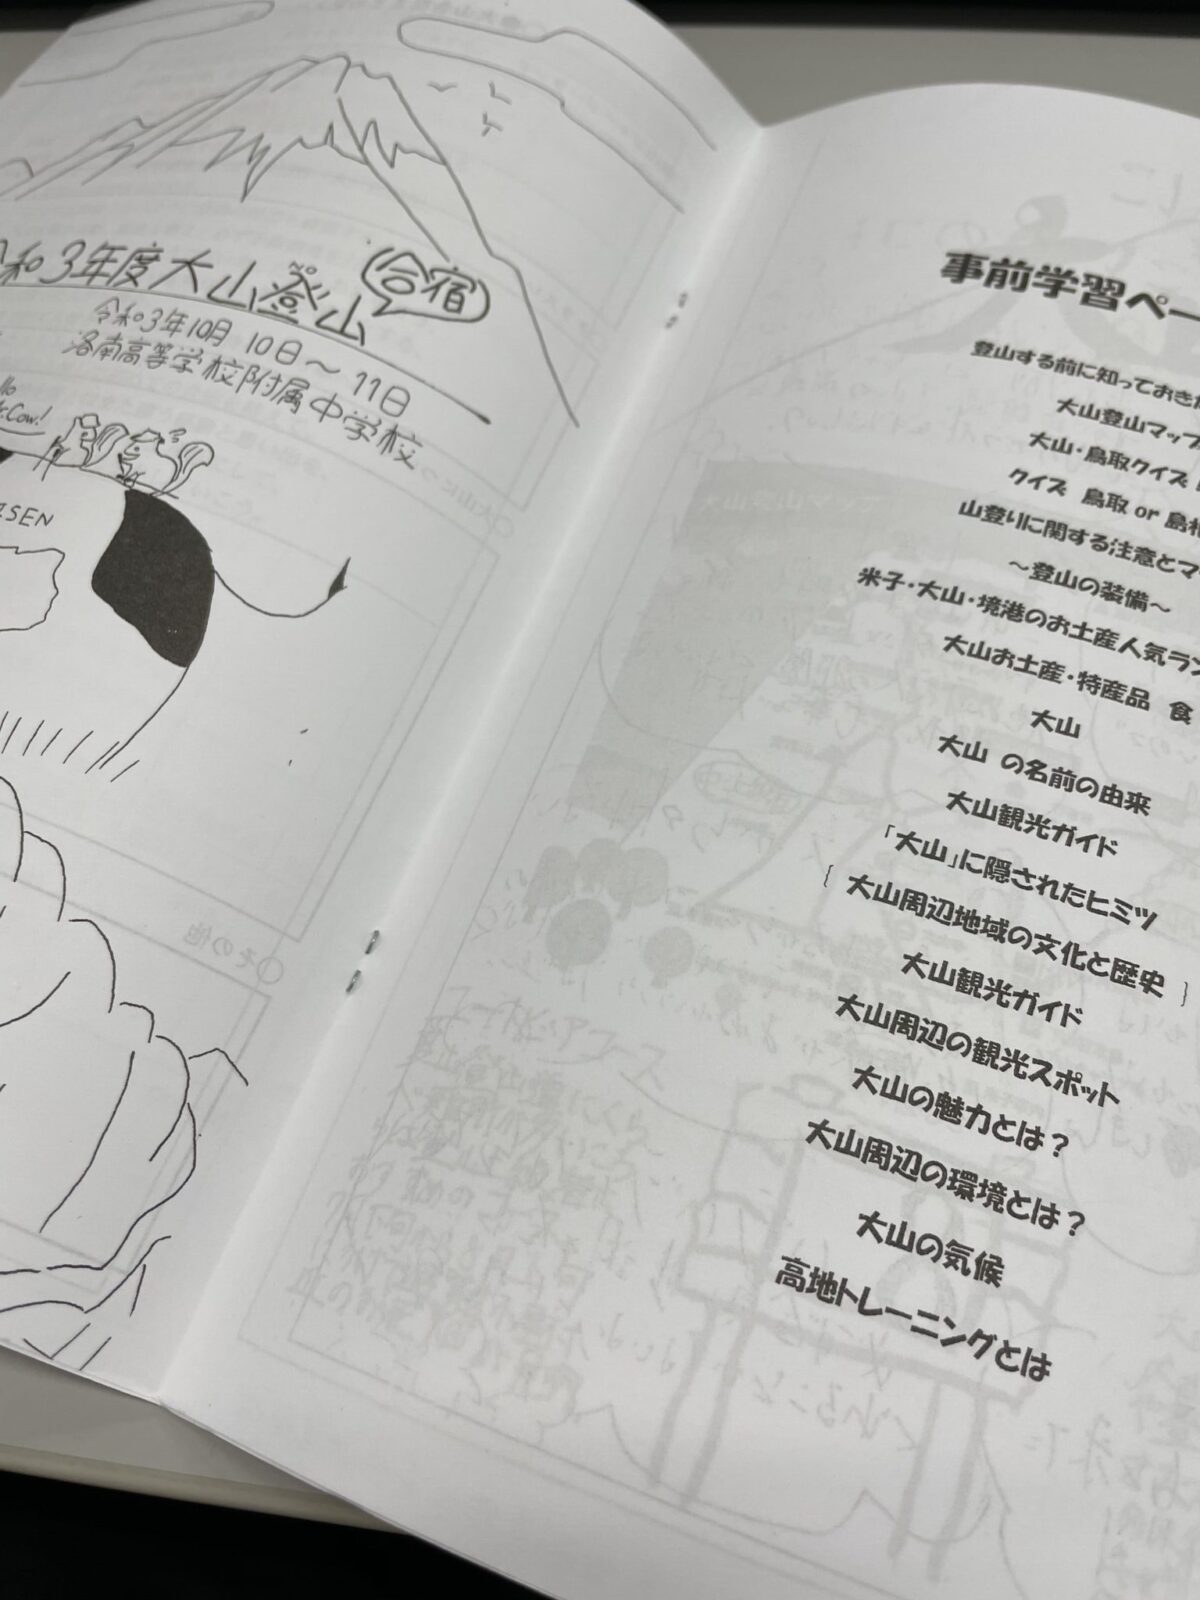 和3年度大山登山合宿
令和3年10月 10日～11日
洛南高等学校附属中学校
Cow!
事前学習ペー
登山する前に知っておき
大山登山マップ
大山・鳥取クイズ
クイズ 鳥取 or 島
山登りに関する注意とマ
～登山の装備～
米子・大山・境港のお土産人気ラン
大山お土産・特産品 食
大山
大山 の名前の由来
大山観光ガイド
「大山」に隠されたヒミツ
{ 大山周辺地域の文化と歴史 }
大山観光ガイド
大山周辺の観光スポット
大山の魅力とは？
大山周辺の環境とは？
大山の気候
高地トレーニングとは